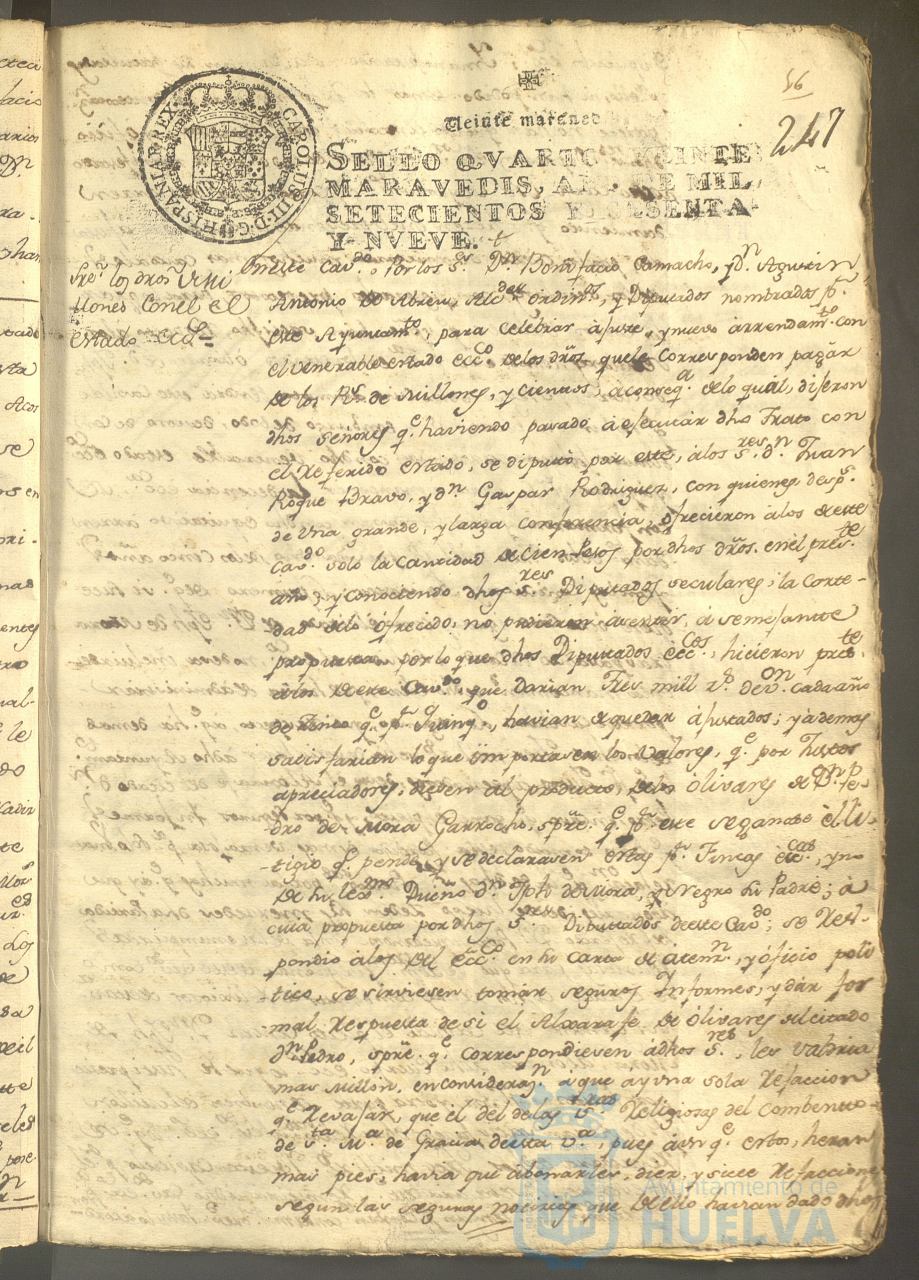 56
247
Veinte maraved
CAROLUS III D G HISPANIAR REX
SELLO QVARTO VEINTE
MARAVEDIS, AÑ DE MIL
SETECIENTOS Y SESENTA
Y NVEVE.
Sre. los dros. Mi
llones Con el el
estado ecco.
En este Cavdo. Por los Srs. Dn. Bonifacio Camacho, y Dn. Agustin
Antonio de Abreu, Alcdes. ordins. y Diputados nombrados pr.
este Ayuntamto. para celebrar ajuste, y nuevo arrendamto. con
el venerable estado ecco. de los dros. que le Corresponden pagar
de los Rs. de Millones, y cientos, a conseqa. de lo qual, dijeron
dhos señores qe. haviendo pasado a efectuar dho Trato con
el referido estado, se diputó por este, a los Sres. Dn. Juan
Roque Bravo, y Dn. Gaspar Rodriguez, con quienes desps.
de una grande, y larga conferencia, ofrecieron a los de este
Cavdo. solo la cantidad de cien Pesos por dhos dros. en el preste.
año, y conociendo dhos Sres. Diputados seculares, la corte-
dad de lo ofrecido, no pudieron asentir, a semejante
propuesta por lo que dhos Diputados eccos. hicieron preste.
a los de este Cavdo. que darian Tres mill rs. de von. cada año
de Tiempo qe. pr. havian de quedar ajustados; y ademas
satisfarian lo que importasen los valores, qe. por Justos
apreciadores, diesen al producto, de los Olivares de Dn. Pe-
dro de Mora Garrocho, spre. qe. pr. este se ganase el Li-
tigio qe. pende, y se declarasen estas pr. Fincas eccas., y no
de su lexmo. Dueño Dn. Jph de Mora, y Negro su Padre; a
cuia propuesta por dhos Sres. Diputados de este Cavdo. se res-
pondio a los del ecco. en su Carta de atemn. y oficio poli
tico, se sirviesen tomar seguros Informes, y dar for
mal respuesta de si el Alxarafe de Olivares del citado
Dn. Pedro, spre. qe. correspondiesen a dhos Sres., les valdria
mas Millon, en considerasn. a que ay una sola refaccion
qe. revajar, que el del de las Sras. Religiosas del Combento
de Sta. Ma. de Gracia de esta Va., pues aunqe. estos, heran
mas pies, havia que abonarles, diez, y siete refacciones
segun las seguras noticias que de ello havian dado dhos
Ayuntamiento de
HUELVA